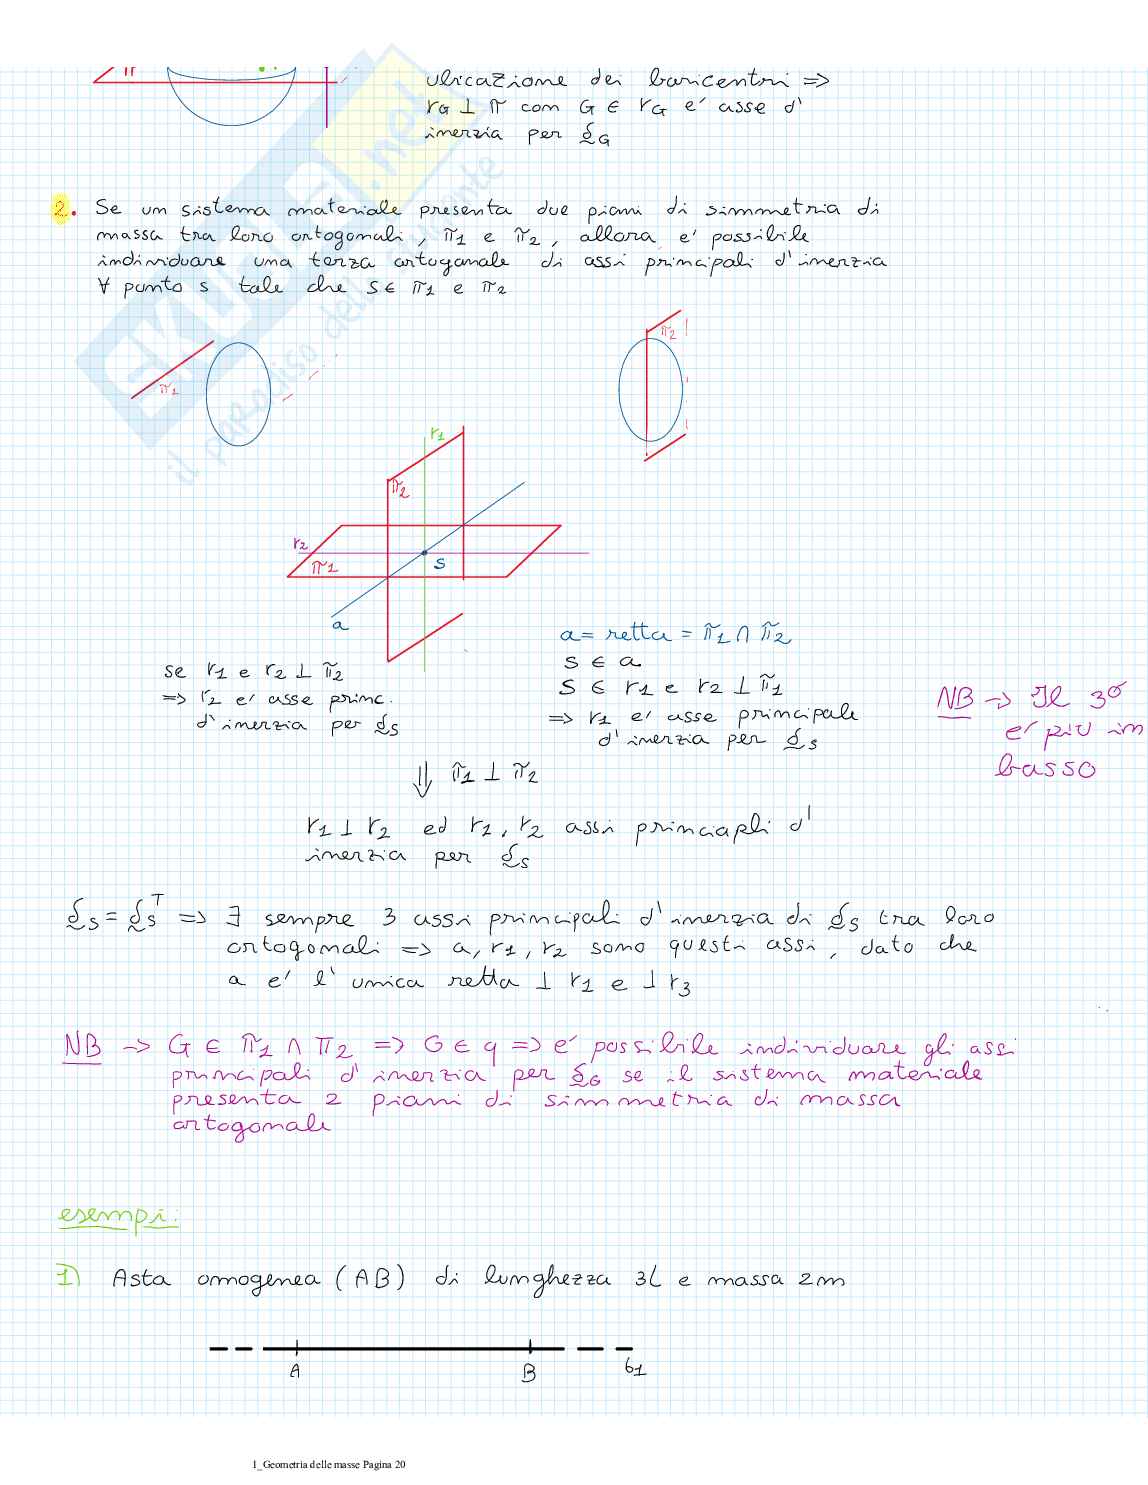 π
ubicazione dei baricentri =>
rG ⊥ π com G ∈ rG e' asse d'
inerzia per δG
2. Se un sistema materiale presenta due piani di simmetria di
massa tra loro ortogonali, π1 e π2, allora e' possibile
individuare una terza ortogonale di assi principali d'inerzia
∀ punto s tale che S ∈ π1 e π2
π1
π2
r1
π2
r2
π1
S
a
a = retta = π1 ∩ π2
S ∈ a
S ∈ r1 e r2 ⊥ π1
=> r1 e' asse principale
d'inerzia per δS
se r1 e r2 ⊥ π2
=> r2 e' asse princ.
d'inerzia per δS
NB -> Il 3°
e' più in
basso
⇓ π1 ⊥ π2
r1 ⊥ r2 ed r1, r2 assi princiapli d'
inerzia per δS
δS = δS^T => ∃ sempre 3 assi principali d'inerzia di δS tra loro
ortogonali => a, r1, r2 sono questi assi, dato che
a e' l'unica retta ⊥ r1 e ⊥ r3
NB -> G ∈ π1 ∩ π2 => G ∈ q => e' possibile individuare gli assi
principali d'inerzia per δG se il sistema materiale
presenta 2 piani di simmetria di massa
ortogonale
esempi:
1) Asta omogenea (AB) di lunghezza 3L e massa 2m
A B b1
1_Geometria delle masse Pagina 20